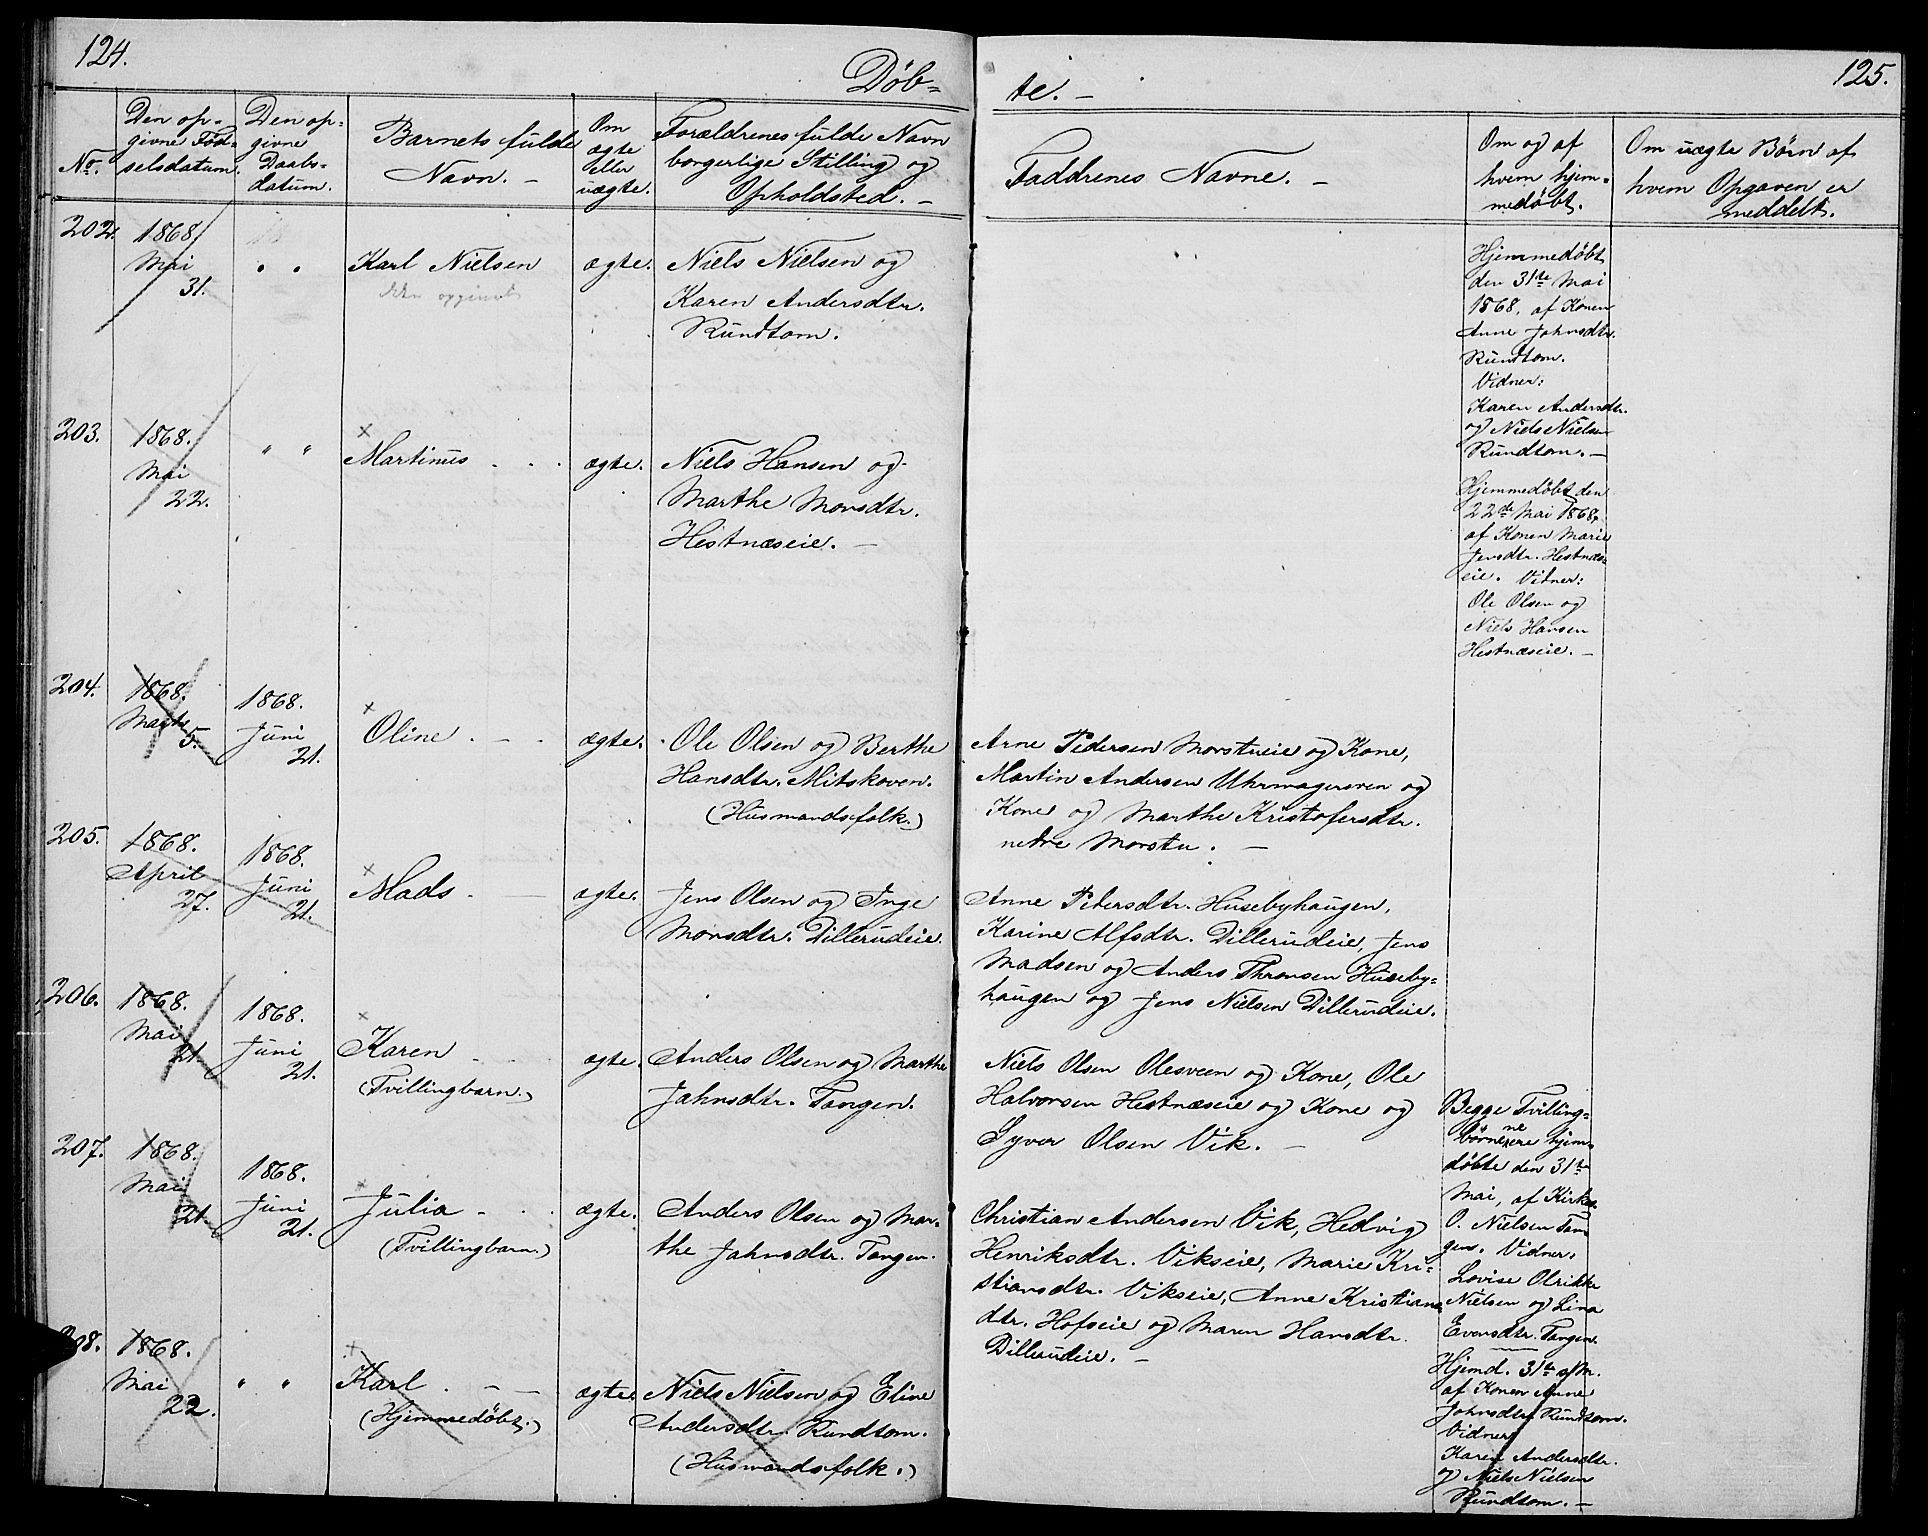 124.
Døb-
No.
Den op-
givne Fød-
selsdatum.
Den op-
givne
Daabs-
datum.
Barnets fulde
Navn. -
Om
ægte
eller
uægte.
Forældrenes fulde Navn
borgerlige Stilling og
Opholdsted. -
202.
1868.
Mai
31.
" "
Karl Nielsen
ægte.
Niels Nielsen og
Karen Andersdtr.
Rundtom.
203.
1868.
Mai
22.
" "
Martinus - - -
ægte.
Niels Hansen og
Marthe Monsdtr.
Hestnæseie. -
204.
1868.
Marts
5.
1868.
Juni
21.
Oline - - -
ægte.
Ole Olsen og Berthe
Hansdtr. Mitskoven.
(Husmandsfolk.)
205.
1868.
April
27.
1868.
Juni
21.
Mads - -
ægte.
Jens Olsen og Inge
Monsdtr. Dillerudeie.
206.
1868.
Mai
21.
1868.
Juni
21.
Karen - - -
(Tvillingbarn.)
ægte.
Anders Olsen og Marthe
Jahnsdtr. Tangen.
207.
1868.
Mai
21.
1868.
Juni
21.
Julia - - -
(Tvillingbarn.)
ægte.
Anders Olsen og Mar-
the Jahnsdtr. Tangen.
208.
1868.
Mai
22.
" "
Karl - - -
(Hjemmedøbt.)
ægte.
Niels Nielsen og Eline
Andersdtr. Rundtom.
(Husmandsfolk.)
125.
te. -
Faddrenes Navne. -
Om og af
hvem hjem-
medøbt.
Om uægte Børn af
hvem Opgaven er
meddelt.
Hjemmedøbt
den 31te Mai
1868, af Konen
Anne Jahnsdtr.
Rundtom.
Vidner:
Karen Andersdtr.
og Niels Nielsen
Rundtom. -
Hjemmedøbt den
22de Mai 1868,
af Konen Marie
Jensdtr. Hestnæs-
eie. Vidner:
Ole Olsen og
Niels Hansen
Hestnæseie. -
Arne Pedersen Morstueie og Kone,
Martin Andersen Uhrmagersven og
Kone og Marthe Kristofersdtr.
nedre Morstu. -
Anne Petersdtr. Husebyhaugen,
Karine Alfsdtr. Dillerudeie, Jens
Madsen og Anders Thronsen Huseby-
haugen og Jens Nielsen Dillerudeie.
Niels Olsen Olesveen og Kone, Ole
Halvorsen Hestnæseie og Kone og
Syver Olsen Vik. -
Begge Tvilling-
børnene ere hjem-
døbte den 31te
Mai, af Kirkes.
O. Nielsen Tan-
gen. Vidner:
Lovise Olrikke
Nielsen og Lina
Evensdtr. Tangen.
Christian Andersen Vik, Hedvig
Henriksdtr. Vikseie, Marie Kri-
stiansdtr. Vikseie, Anne Kristians
dtr. Hofseie og Maren Hansdtr.
Dillerudeie. -
Hjemd. 31te af M.
af Konen Anne
Jahnsdtr. Rundtom.
Vidner:
Karen Andersdtr.
og Niels Nielsen
Rundtom. -